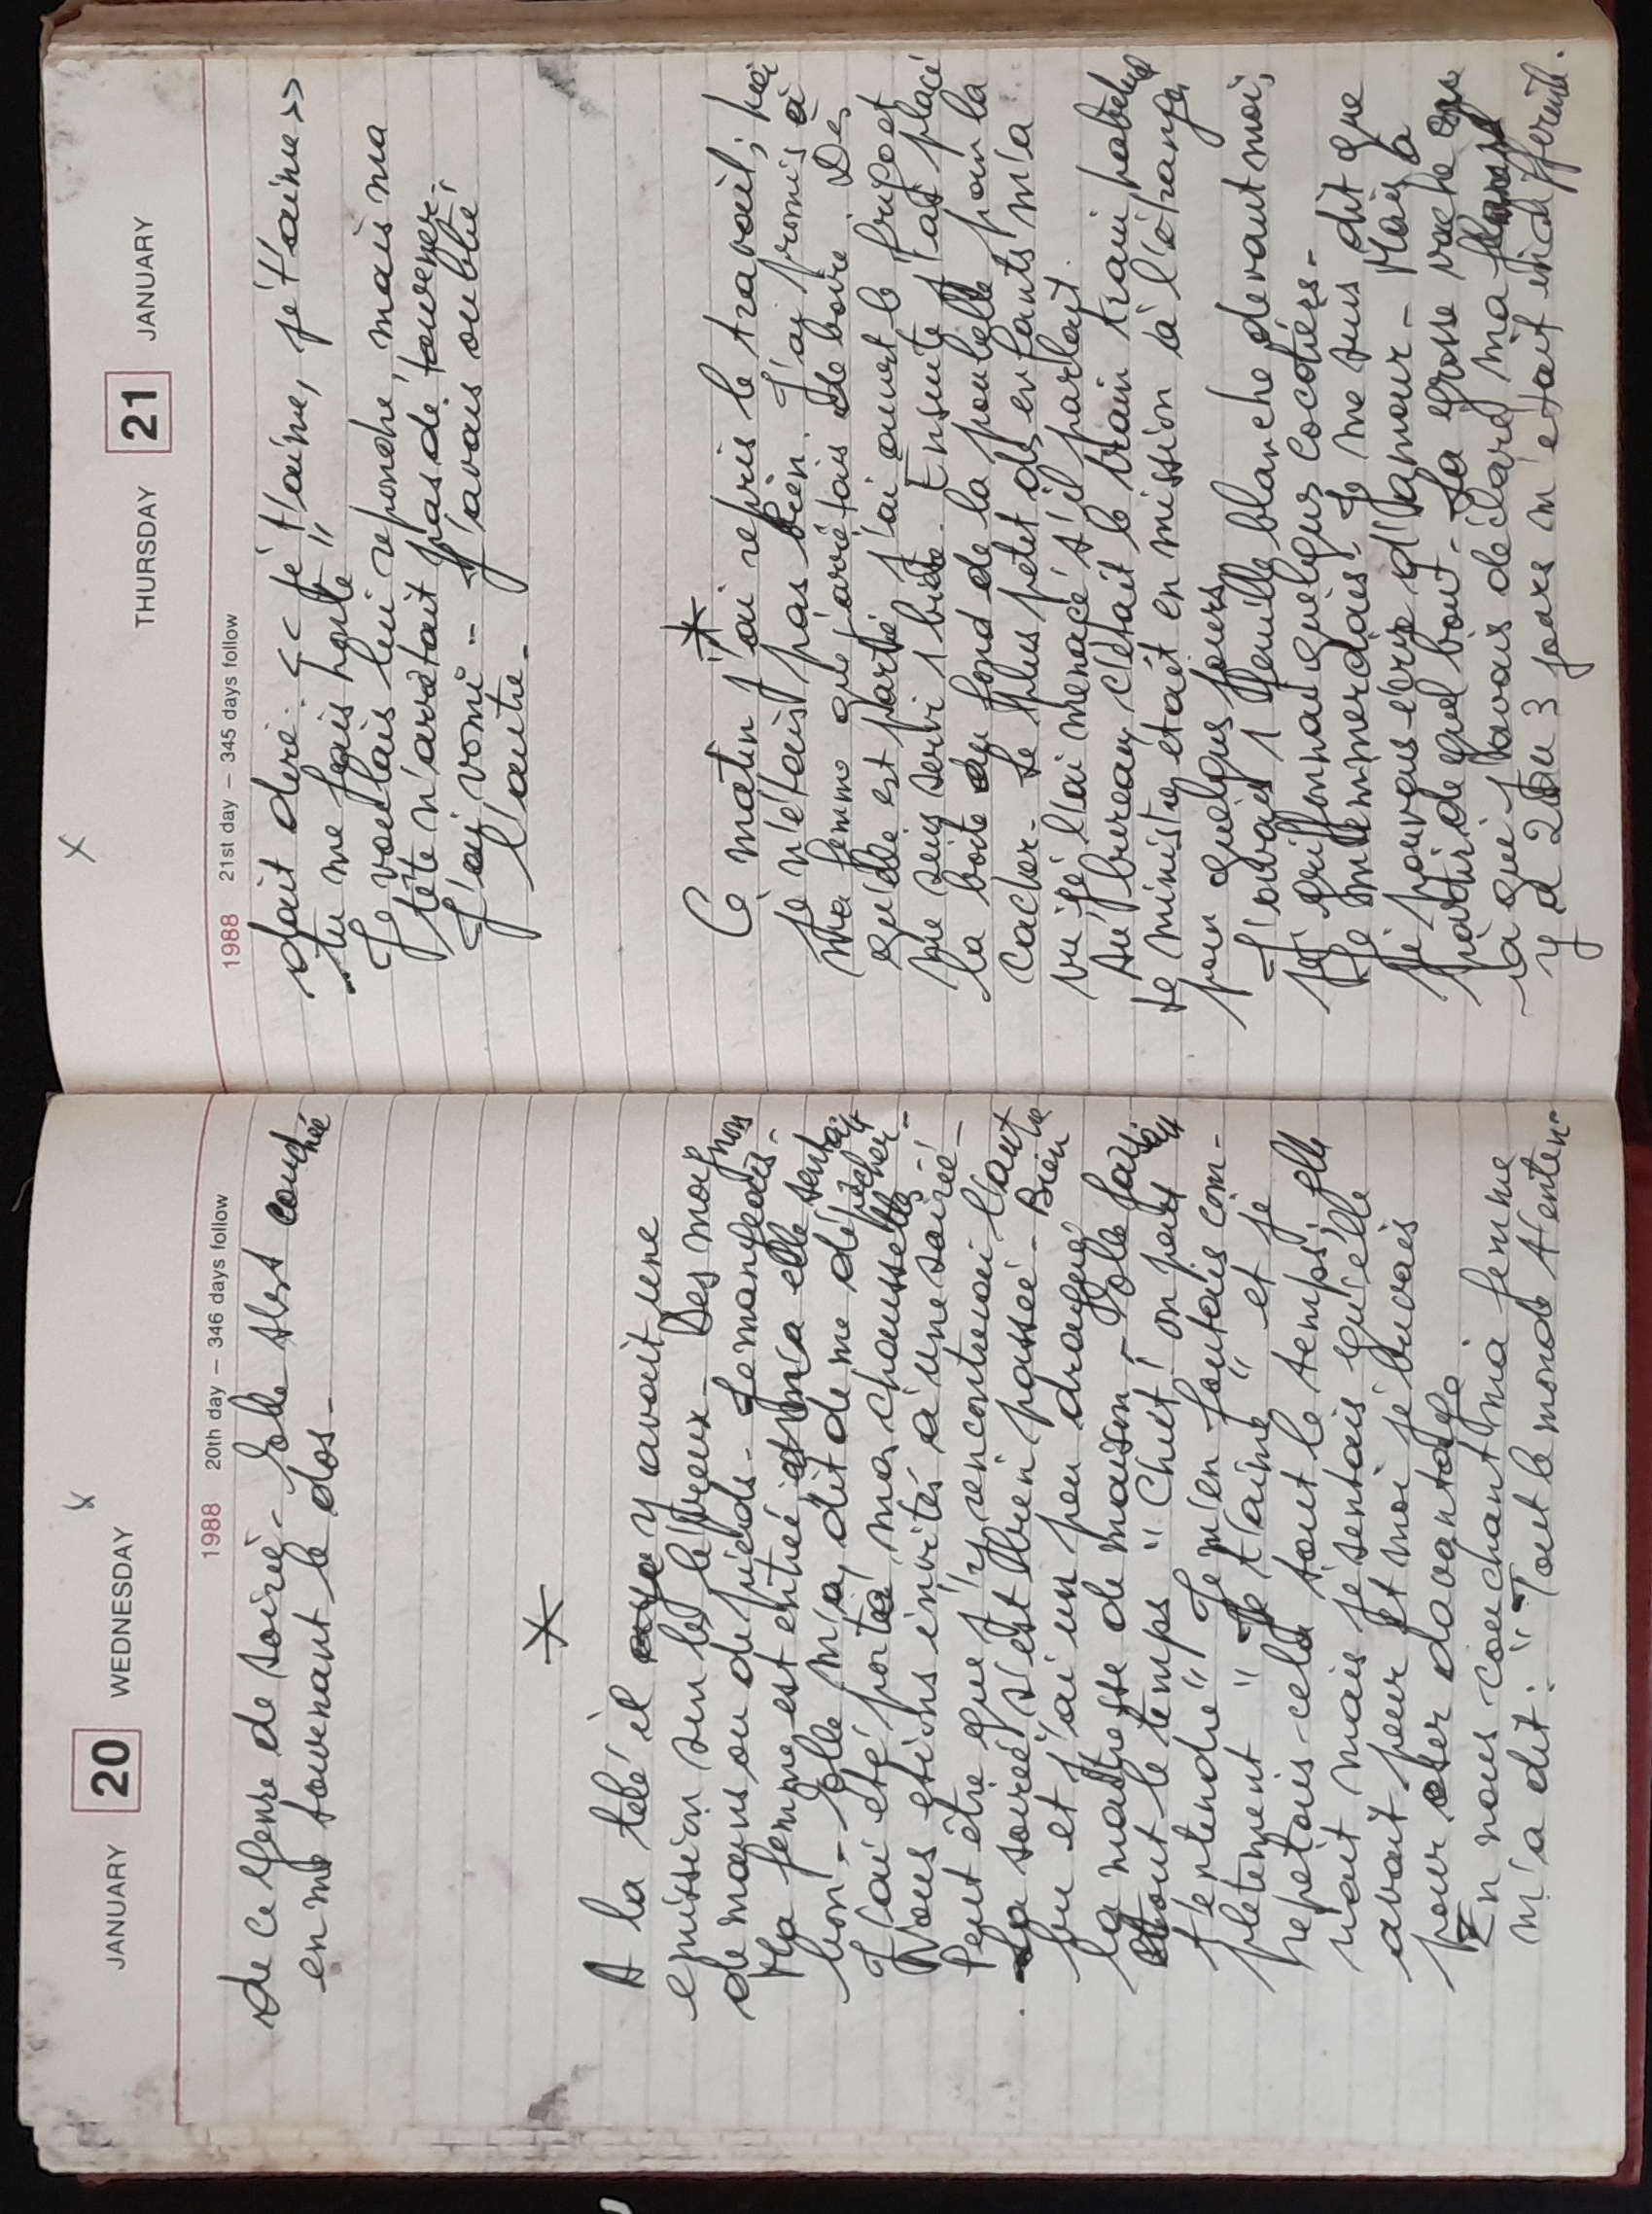 JANUARY 20 WEDNESDAY
1988 20th day – 346 days follow
de ce genre de soirée - Elle s'est couchée
en me tournant le dos -
A la télé il y avait une
emission sur les lépreux - Des moignons
de mains ou de pieds - Je mangeais -
Ma femme est entrée et m'a elle sentait
bon - Elle m'a dit de me dépêcher -
J'ai été porté à mes chaussettes
Nous etions invités à une soirée -
Peut être que j'y rencontrerai l'autre
La soirée s'est bien passée - Bien
bu et j'ai un peu dragué
la maîtresse de maison - Elle faisait
tout le temps " Chut ! on peut
t'entendre " Je m'en foutais com-
pletement " Je t'aime " et je
repetais cela tout le temps, elle
riait mais je sentais qu'elle
avait peur et moi je buvais
pour oser davantage
En nous couchant ma femme
m'a dit : " Tout le monde t'enten-
THURSDAY 21 JANUARY
1988 21st day – 345 days follow
dait dire : << je t'aime, je t'aime >>
tu me fais honte "
Je voulais lui repondre, mais ma
tête n'arretait pas de tourner -
J'ai vomi - J'avais oublié
l'autre -
Ce matin j'ai repris le travail ;
je n'étais pas bien. J'ai promis à
ma femme que j'arrêtais de boire Dès
qu'elle est partie j'ai ouvert le frigo et
me suis servi 1 bière. Ensuite j'ai placé
la boite au fond de la poubelle pour la
cacher - Le plus petit des enfants m'a
vu je l'ai menacé s'il parlait.
Au bureau c'était le train train habituel
Le ministre etait en mission à l'étranger
pour quelques jours
J'avais 1 feuille blanche devant moi,
je griffonnai quelques cocotiers -
Je m'emmerdais - Je me suis dit que
je pouvais ecrire d'amour - Mais à
partir de quel bout - La grosse vache
à qui j'avais déclaré ma flamme
y a 2 ou 3 jours m'etait indifferente.